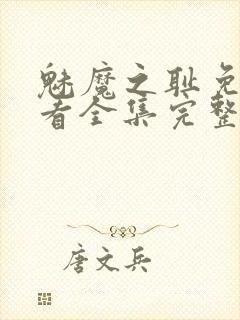 魅魔之耻免
看全集完整
唐文兵